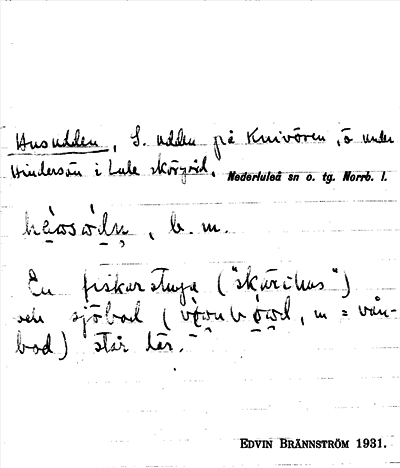 Husudden, S. udden på Knivören, ö under
Hindersön i Lule skärgård. Nederluleå sn o. tg. Norrb. l.
, b. m.
En fiskarstuga ("skärihus")
och sjöbod (, m = vån-
bod) står här.
EDVIN BRÄNNSTRÖM 1931.